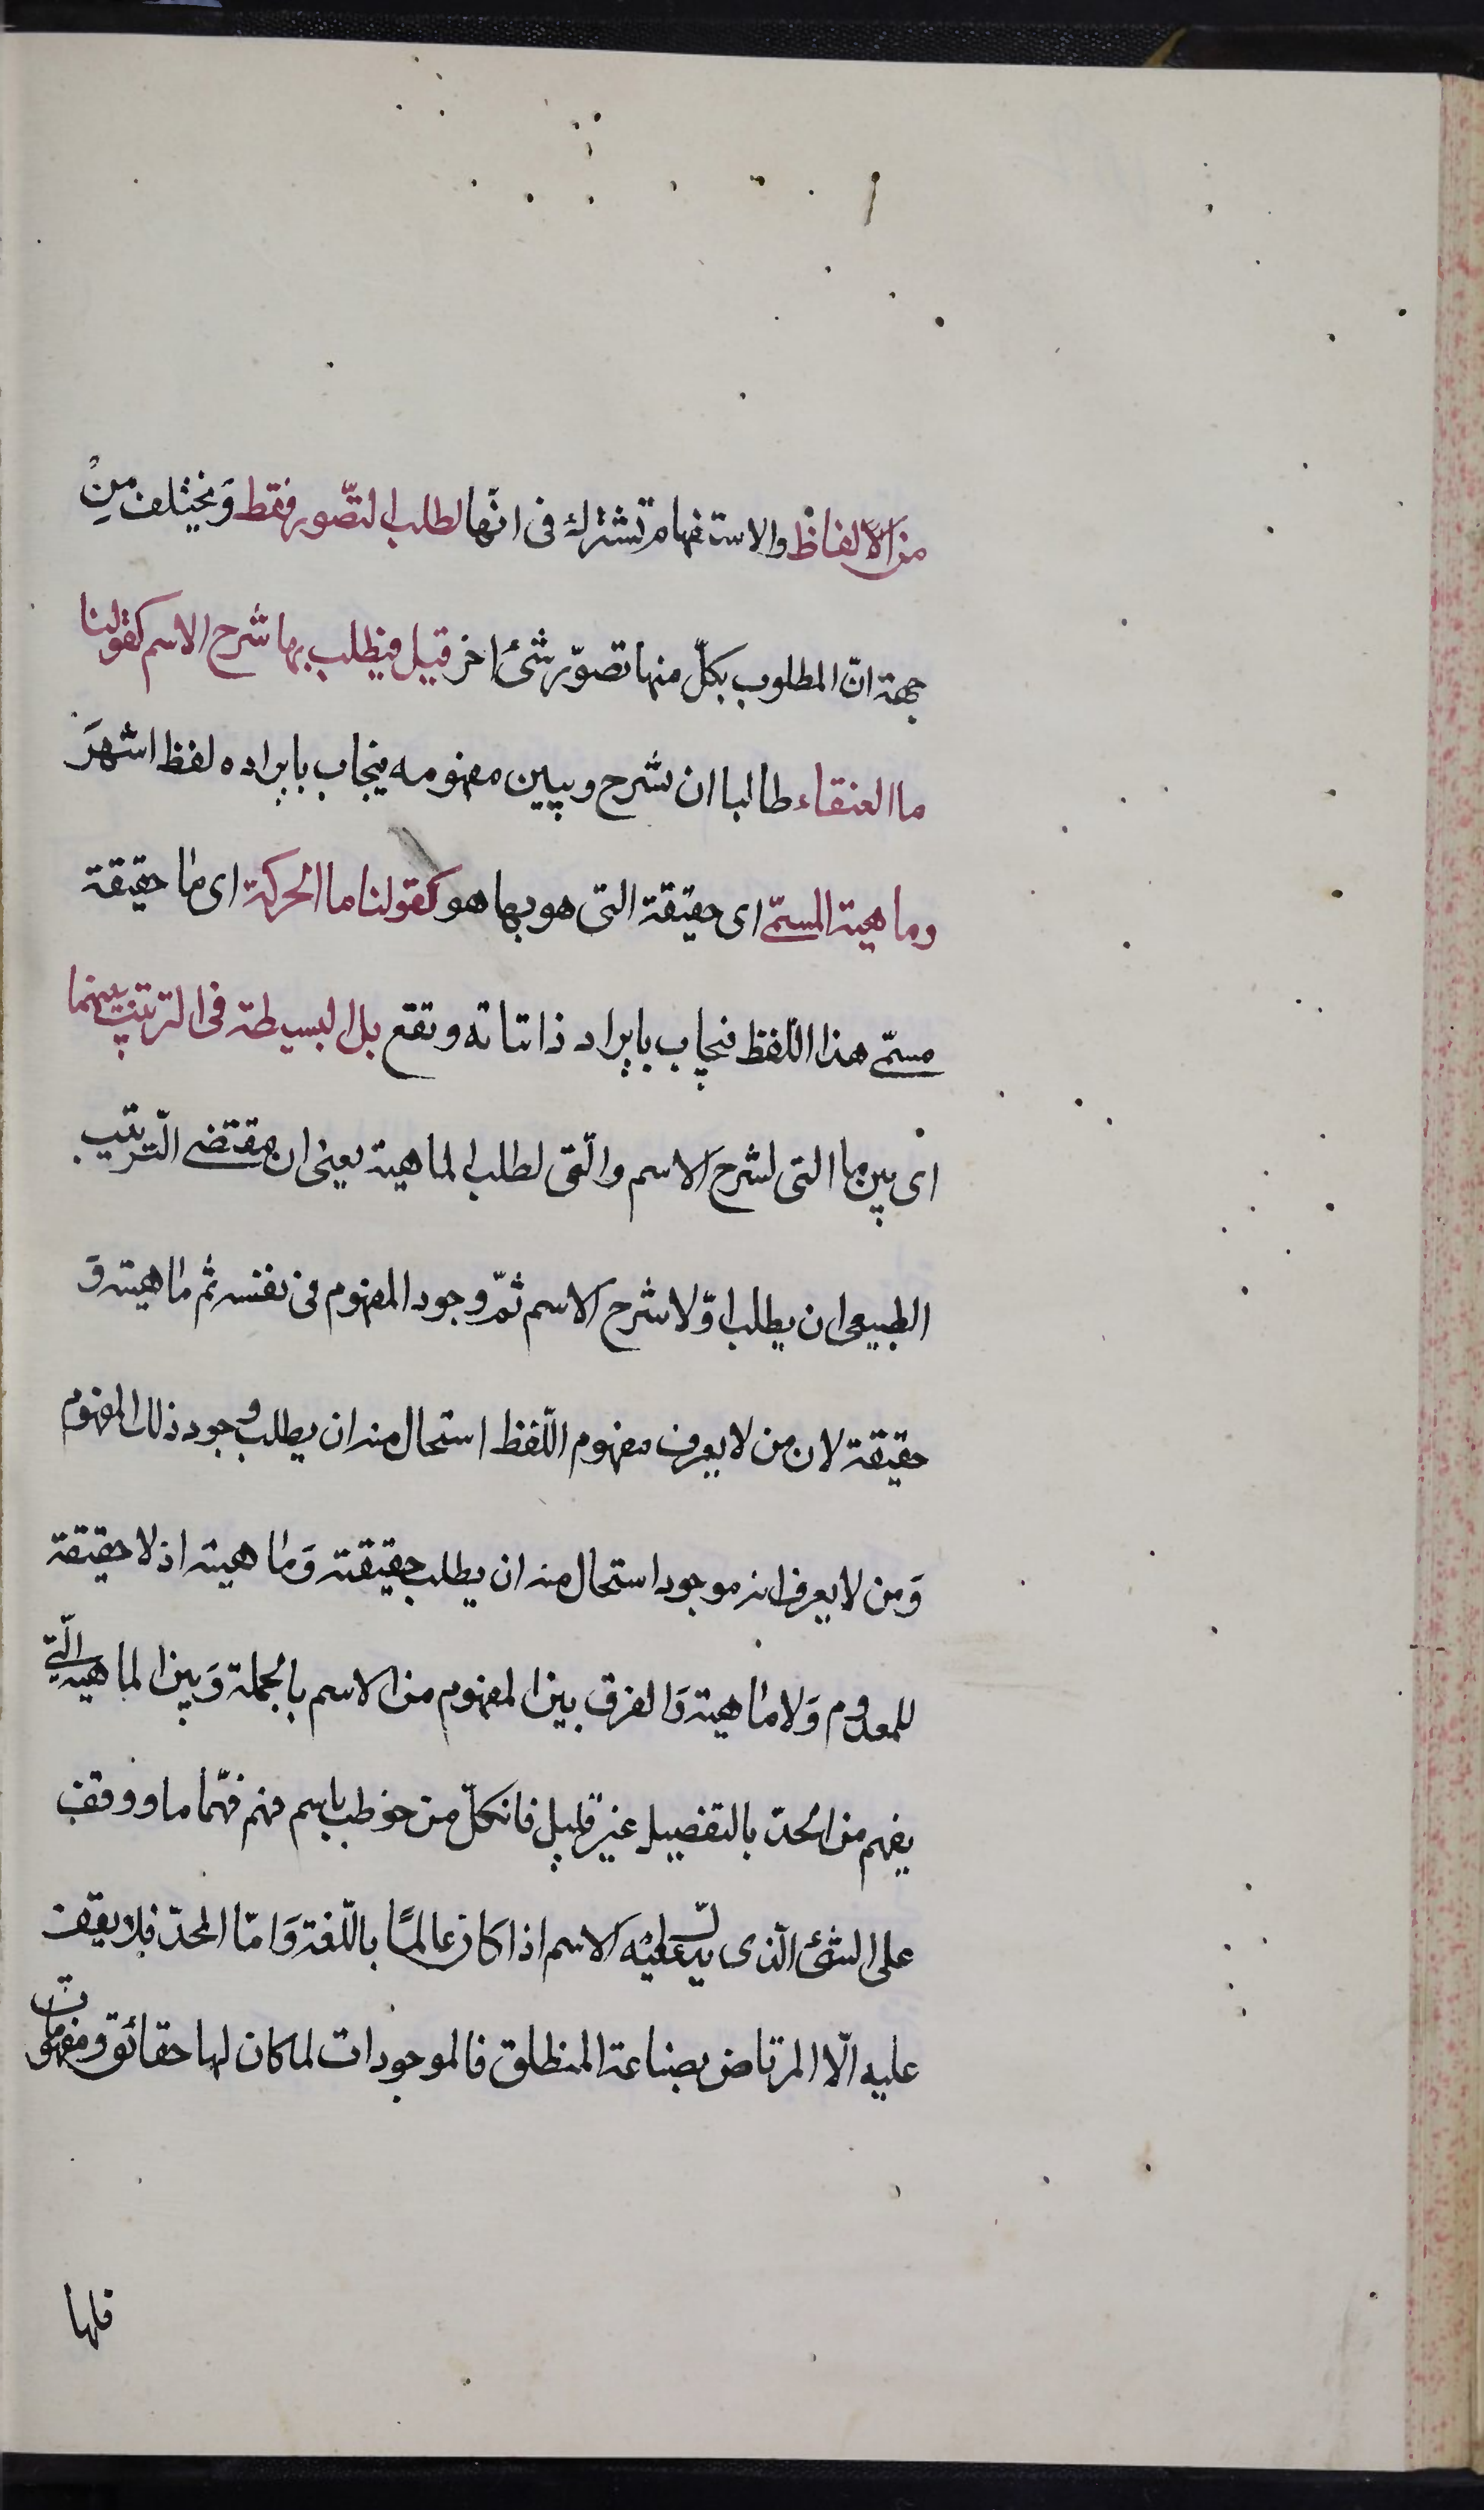 من الالفاظ والاستفهام تشترك فى انّها لطلب التّصور فقط وَيختلف مِنْ
جهة انّ المطلوب بكلّ منها تصوّر شئ اخر قيل فيطلب بها شرح الاسم كقولنا
ما العنقاء طالبا ان شرح ويبين مفهومه فيجاب بايراده لفظ اشهرَ
وماهية المسمّى اى حقيقة التى هو بها هو كقولنا ما الحركة اى ما حقيقة
مسمّى هذا اللّفظ فيجاب بايراد ذاتياته وتقع بل البسيطة فى الترتيب بينهما
اى بين ما التى لشرح الاسم والّتى لطلب الماهية يعنى ان مقتضى التّرتيب
الطبيعى ان يطلب اوّلا شرح الاسم ثمّ وجود المفهوم فى نفسه ثم ماهيته وَ
حقيقة لان من لا يعرف مفهوم اللّفظ استحال منه ان يطلب وجود ذلك المفهوم
وَمن لا يعرف انه موجود استحال منه ان يطلب حقيقته وَماهيته اذ لا حقيقة
للمعدوم وَلا ماهية وَالفرق بين المفهوم من الاسم بالجملة وَبين الماهية الّتى
يفهم من الحدّ بالتفصيل غير قليل فانكلّ من خوطب باسم فهم فهّما ما ووقف
على الشئ الّذى يدلّ عليْه الاسم اذا كان عالمًا باللّغة وَامّا الحدّ فلا يقف
عليه الّا المرتاض بصناعة المنطلق فالموجودات لما كان لها حقائق ومفهومات
فلها